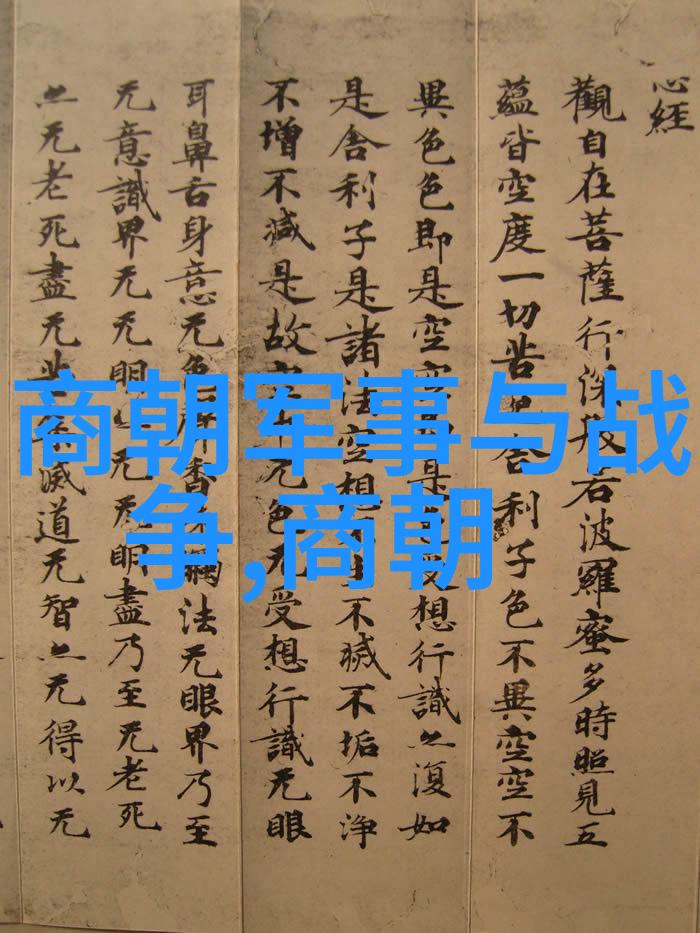 心經
觀自在菩薩行深般若波羅蜜多時照見五
蘊皆空度一切苦舍利子色不異空空不
異色色即是空空是受想行識亦復如
是舍利子是諸法空相不滅不垢不淨
不增不減是故空中无色无受想行識无眼
耳鼻舌身意无色聲香觸法无眼界乃至
无意識界无无明亦无无明盡乃至无老死
亦无老死盡无苦滅道无智亦无得以无
商朝军事与战
争,商朝